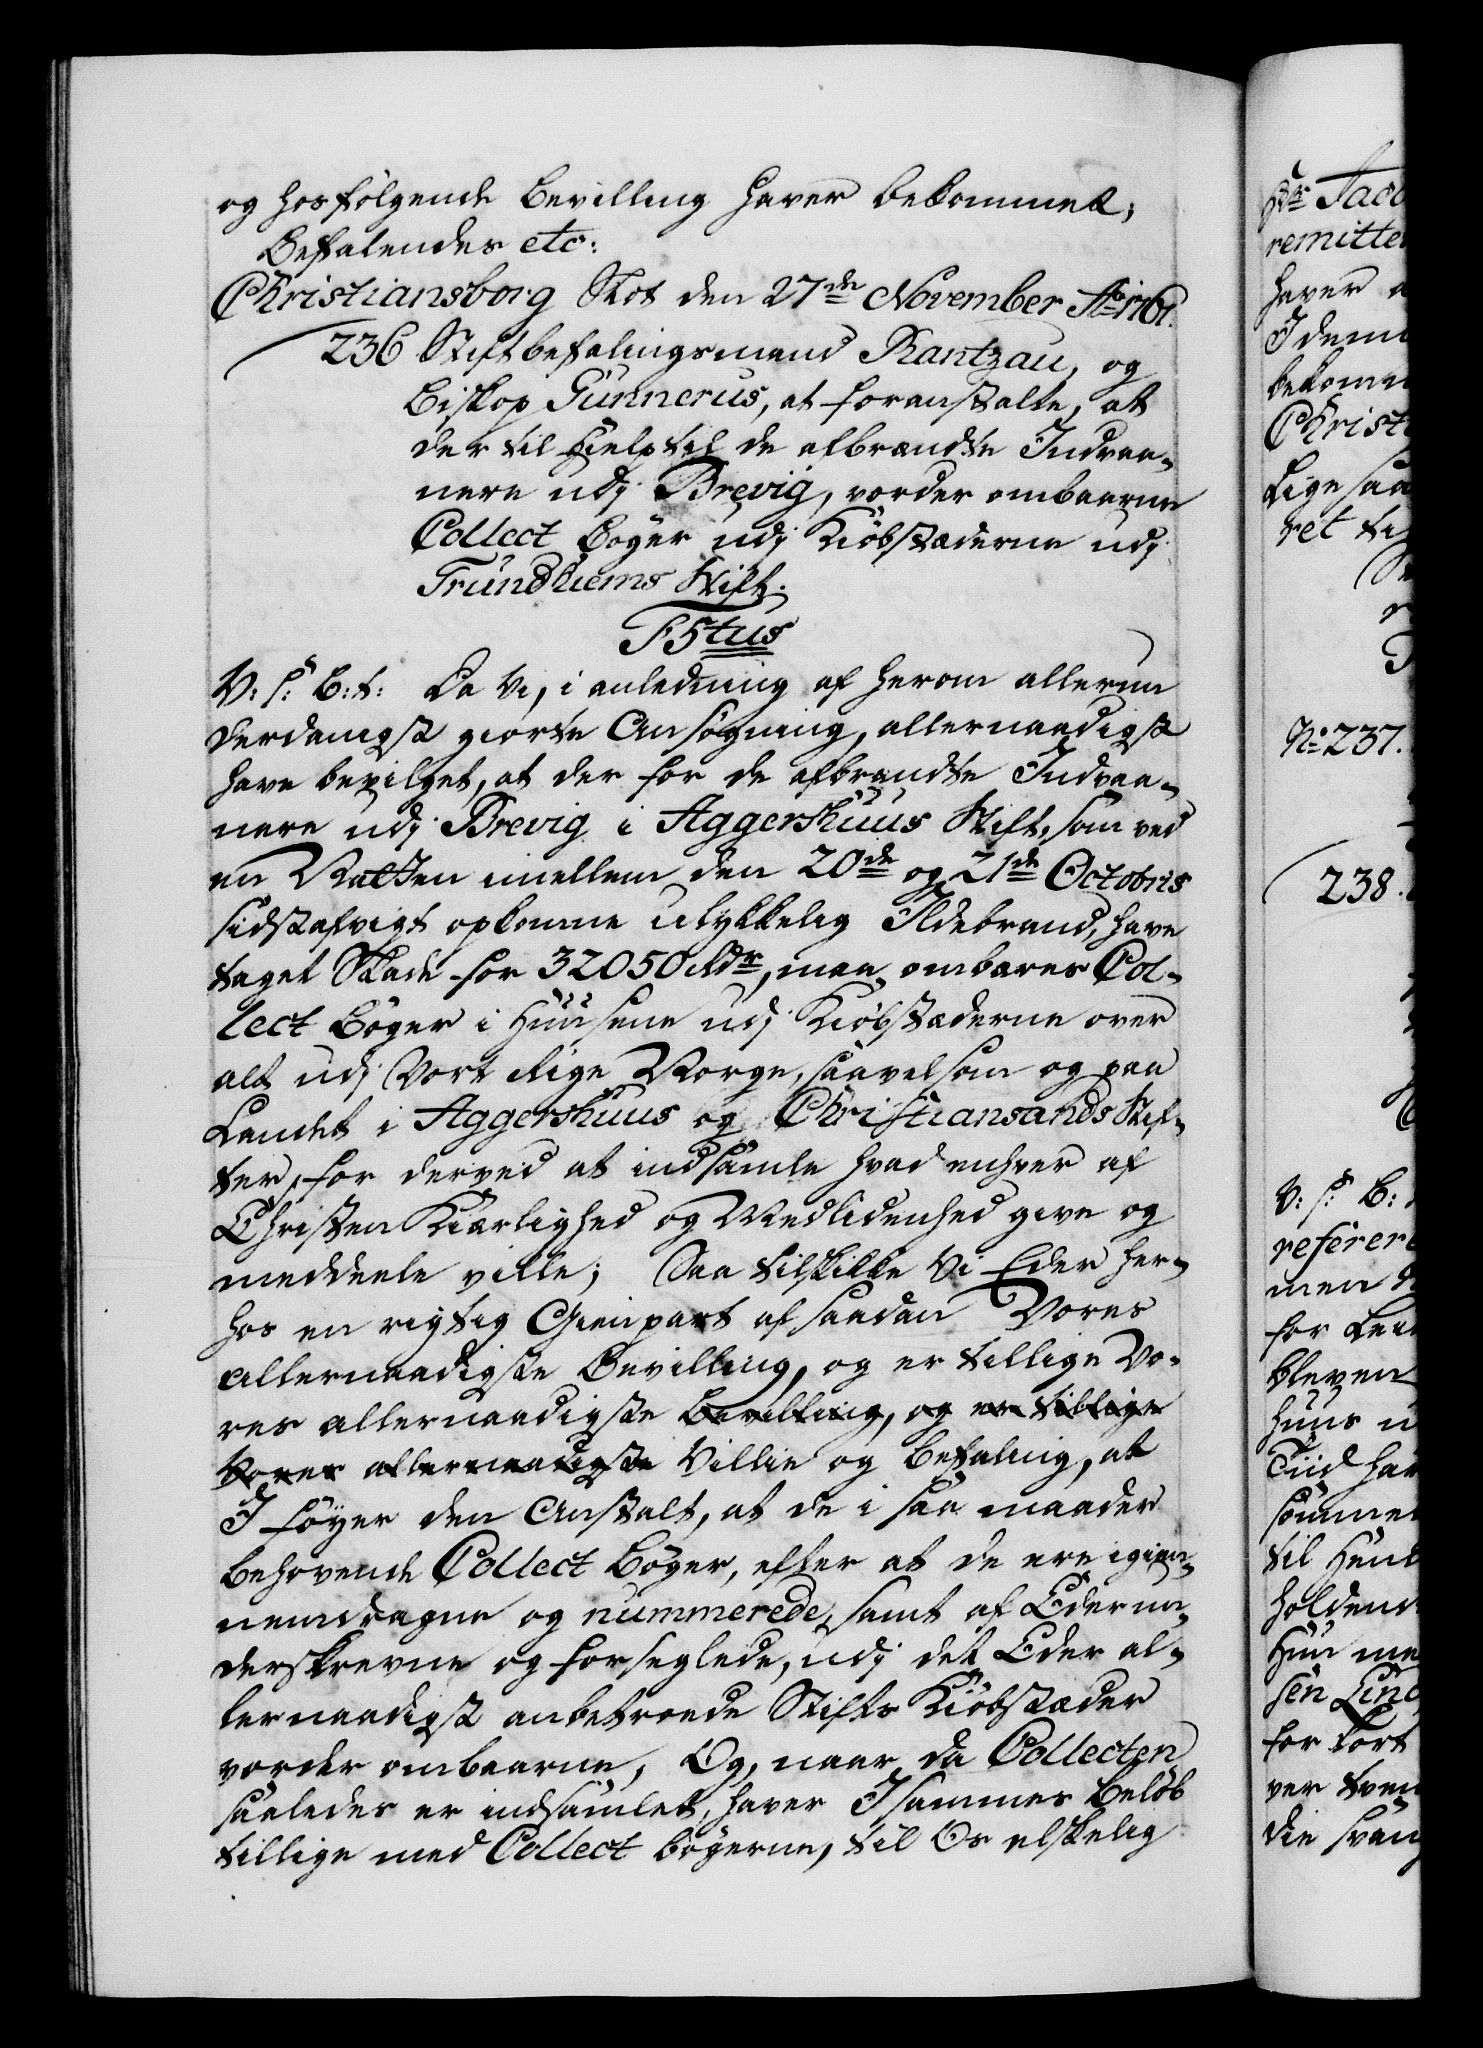 og hosfølgende Bevilling haver bekommet;
Befalendes etc:
Christiansborg Slot den 27de November Ao 1761.
236 Stiftbefalingsmand Rantzau, og
Biskop Gunnerus, at foranstalte, at
der til Hielp til de afbrændte Indvaa-
nere udj Brevig, vorder ombaarne
Collect Bøger udj Kiøbstæderne udj
Trundhiems Stift.
F5tus
V: s: B: t: Da Vi, i anledning af herom allerun
derdanigst giorte Ansøgning, allernaadigst
have bevilget, at der for de afbrændte Indvaa-
nere udj Brevig i Aggershuus Stift, som ved
en Natten imellem den 20de og 21de Octobris
sidstafvigt opkomne ulykkelig Ildebrand, have
taget Skade for 32050 Rdr, maa ombæres Col-
lect Bøger i Huusene udj Kiøbstæderne over
alt udj Vort Rige Norge, saavelsom og paa
Landet i Aggershuus og Christiansands Stif-
ter, for derved at indsamle hvad enhver af
Christen Kiærlighed og Medlidenhed give og
meddeele ville; Saa tilskikke Vi Eder her-
hos en rigtig Gienpart af saadan Vores
allernaadigste Bevilling, og er tillige Vo-
res allernaadigste Bevilling, og er tillige
Vores allernaadigste Villie og Befaling, at
I føyer den Anstalt, at de i saa maader
behøvende Collect Bøger, efter at de ere igien-
nemdragne og nummerede, samt af Eder un-
derskrevne og forseglede, udj det Eder al-
lernaadigst anbetroede Stifts Kiøbstæder
vorder ombaarne, Og, naar da Collecten
saaledes er indsamlet, haver I sammes Beløb
tillige med Collect bøgerne, til Os elskelig
Hr Jaco
remitte
haver
I dem
bekom
Christ
Lige saa
ret ti
No 237.
238.
V: s: B:
referere
men
for
bleven
huus
Tiid har
sømme
til
holdend
Hun me
sen Lind
for kort
ver
die